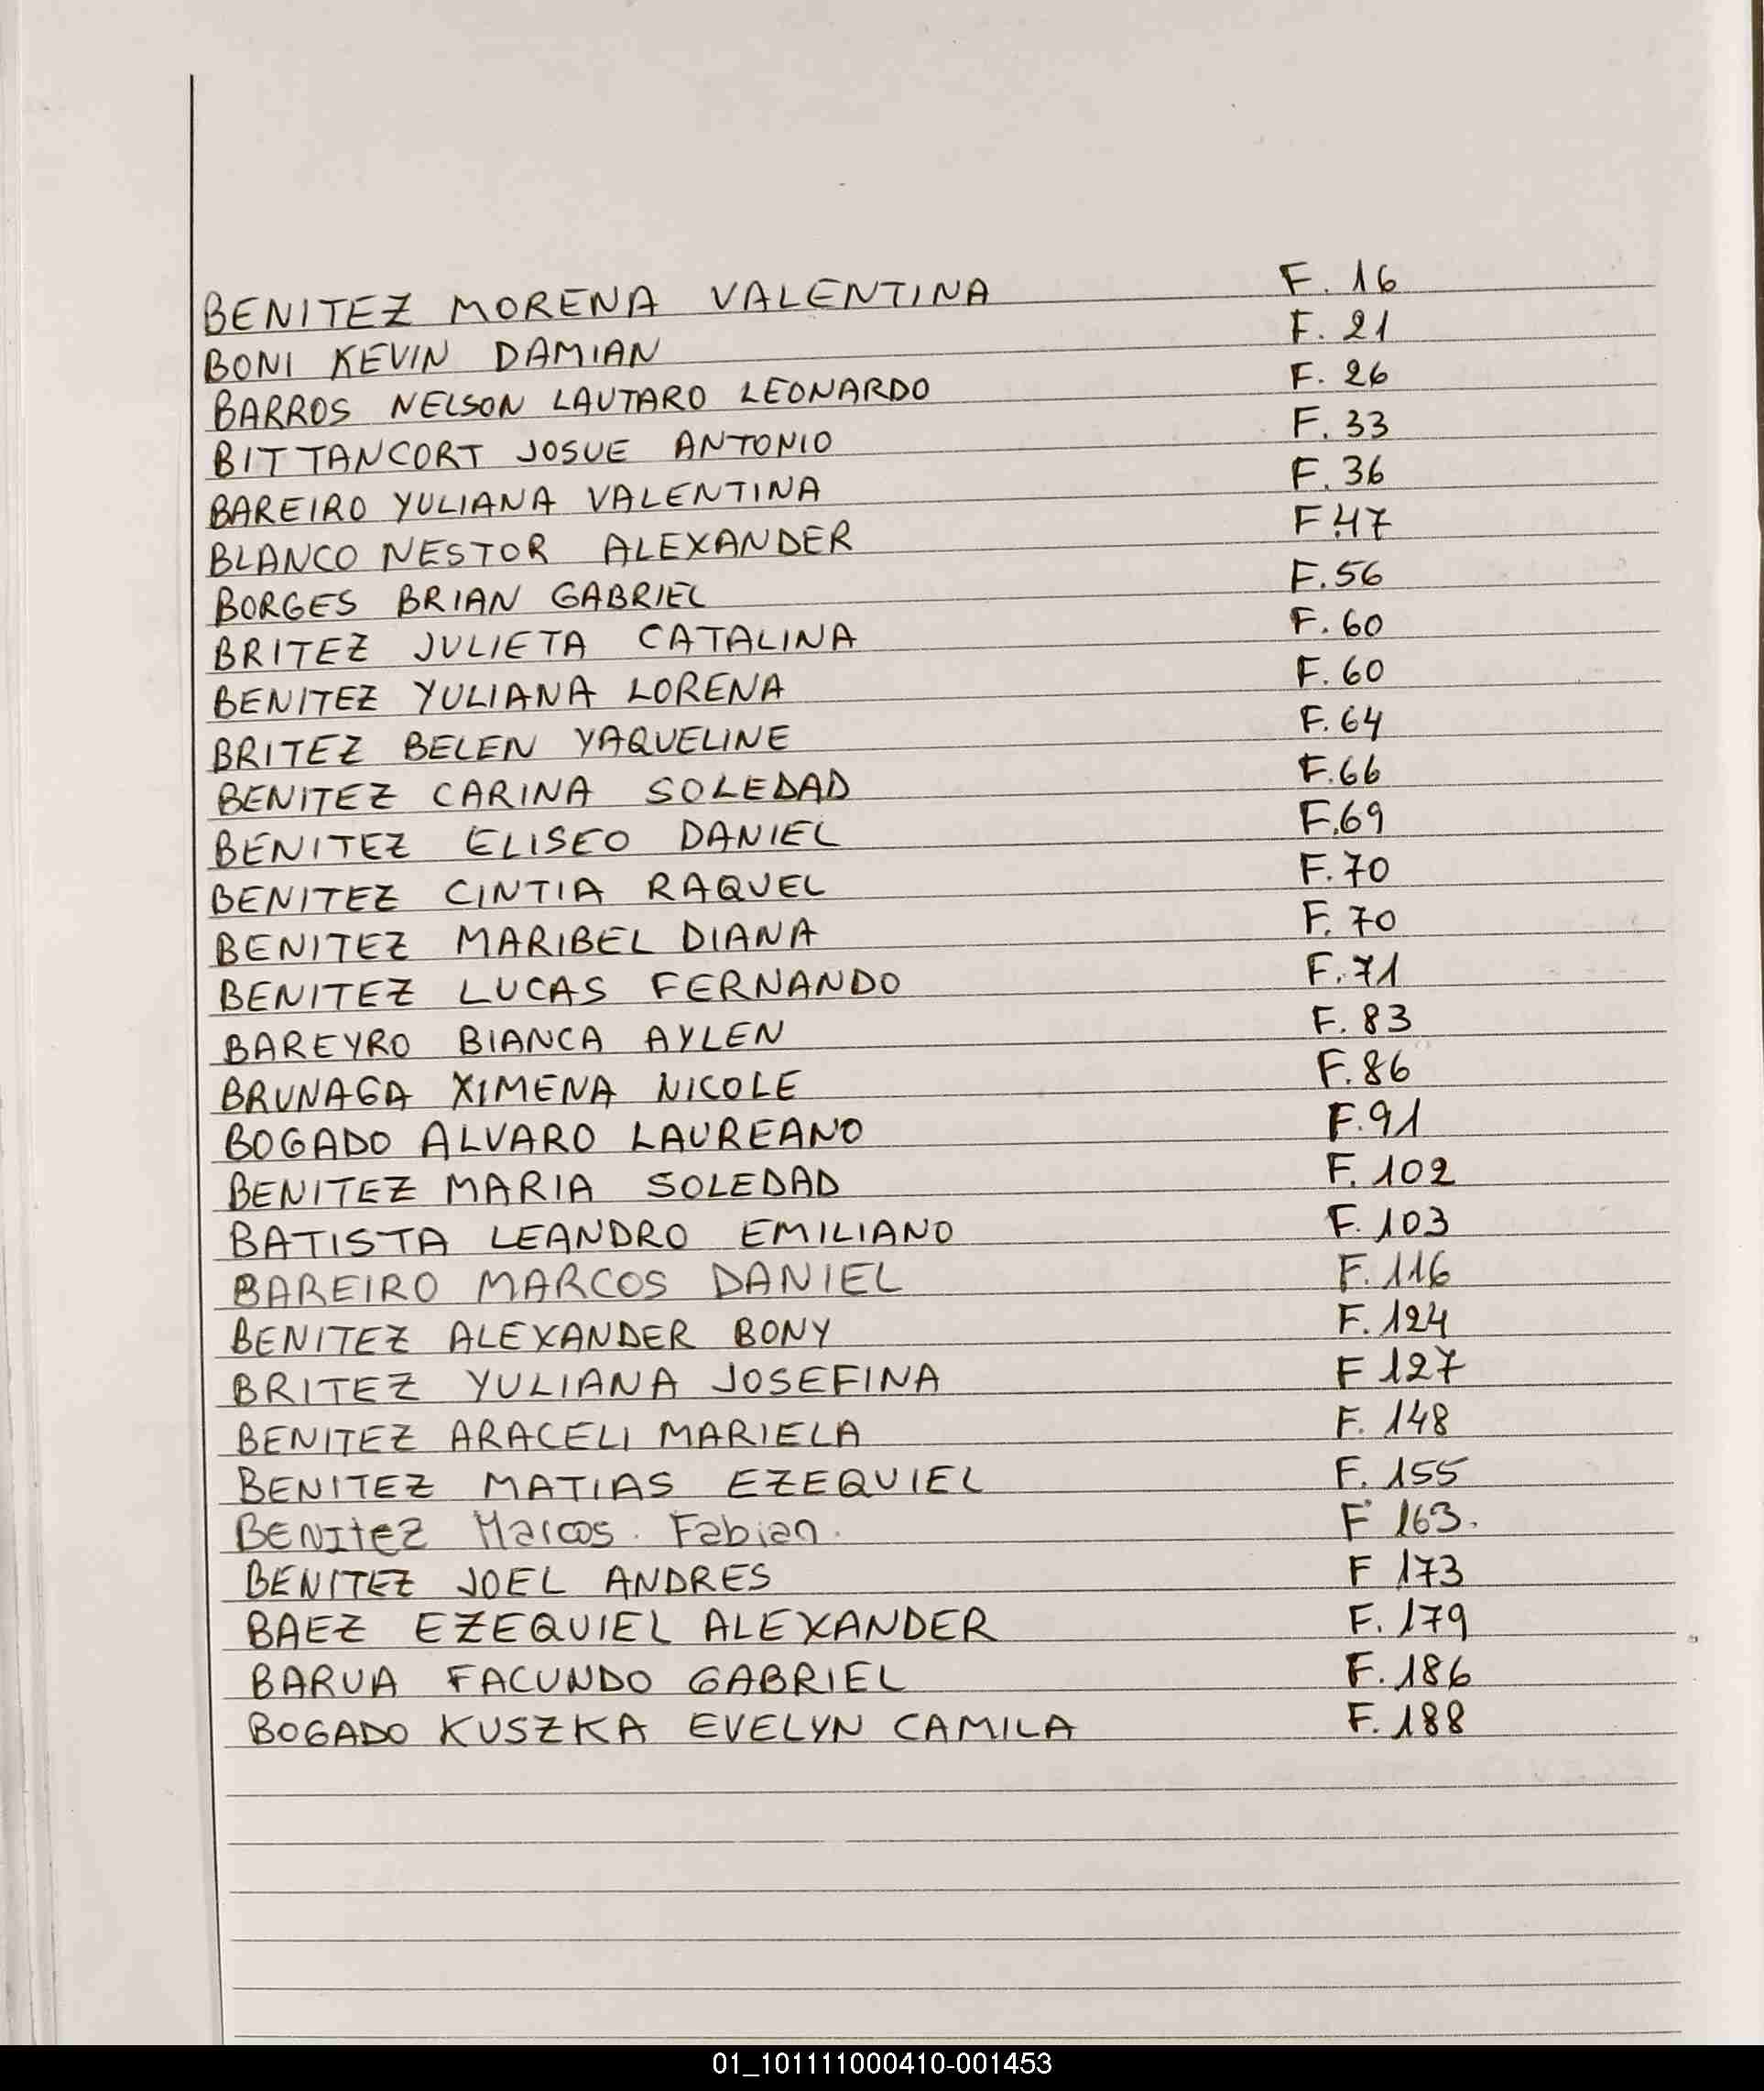 BENITEZ MORENA VALENTINA F. 16
BONI KEVIN DAMIAN F. 21
BARROS NELSON LAUTARO LEONARDO F. 26
BITTANCORT JOSUE ANTONIO F. 33
BAREIRO YULIANA VALENTINA F. 36
BLANCO NESTOR ALEXANDER F.47
BORGES BRIAN GABRIEL F.56
BRITEZ JULIETA CATALINA F. 60
BENITEZ YULIANA LORENA F. 60
BRITEZ BELEN YAQUELINE F. 64
BENITEZ CARINA SOLEDAD F.66
BENITEZ ELISEO DANIEL F.69
BENITEZ CINTIA RAQUEL F. 70
BENITEZ MARIBEL DIANA F. 70
BENITEZ LUCAS FERNANDO F. 71
BAREYRO BIANCA AYLEN F. 83
BRUNAGA XIMENA NICOLE F. 86
BOGADO ALVARO LAUREANO F. 91
BENITEZ MARIA SOLEDAD F. 102
BATISTA LEANDRO EMILIANO F. 103
BAREIRO MARCOS DANIEL F. 116
BENITEZ ALEXANDER BONY F. 124
BRITEZ YULIANA JOSEFINA F 127
BENITEZ ARACELI MARIELA F. 148
BENITEZ MATIAS EZEQUIEL F. 155
BENItEZ Marcos. Fabian. F 163.
BENITEZ JOEL ANDRES F 173
BAEZ EZEQUIEL ALEXANDER F. 179
BARUA FACUNDO GABRIEL F. 186
BOGADO KUSZKA EVELYN CAMILA F. 188
01_101111000410-001453